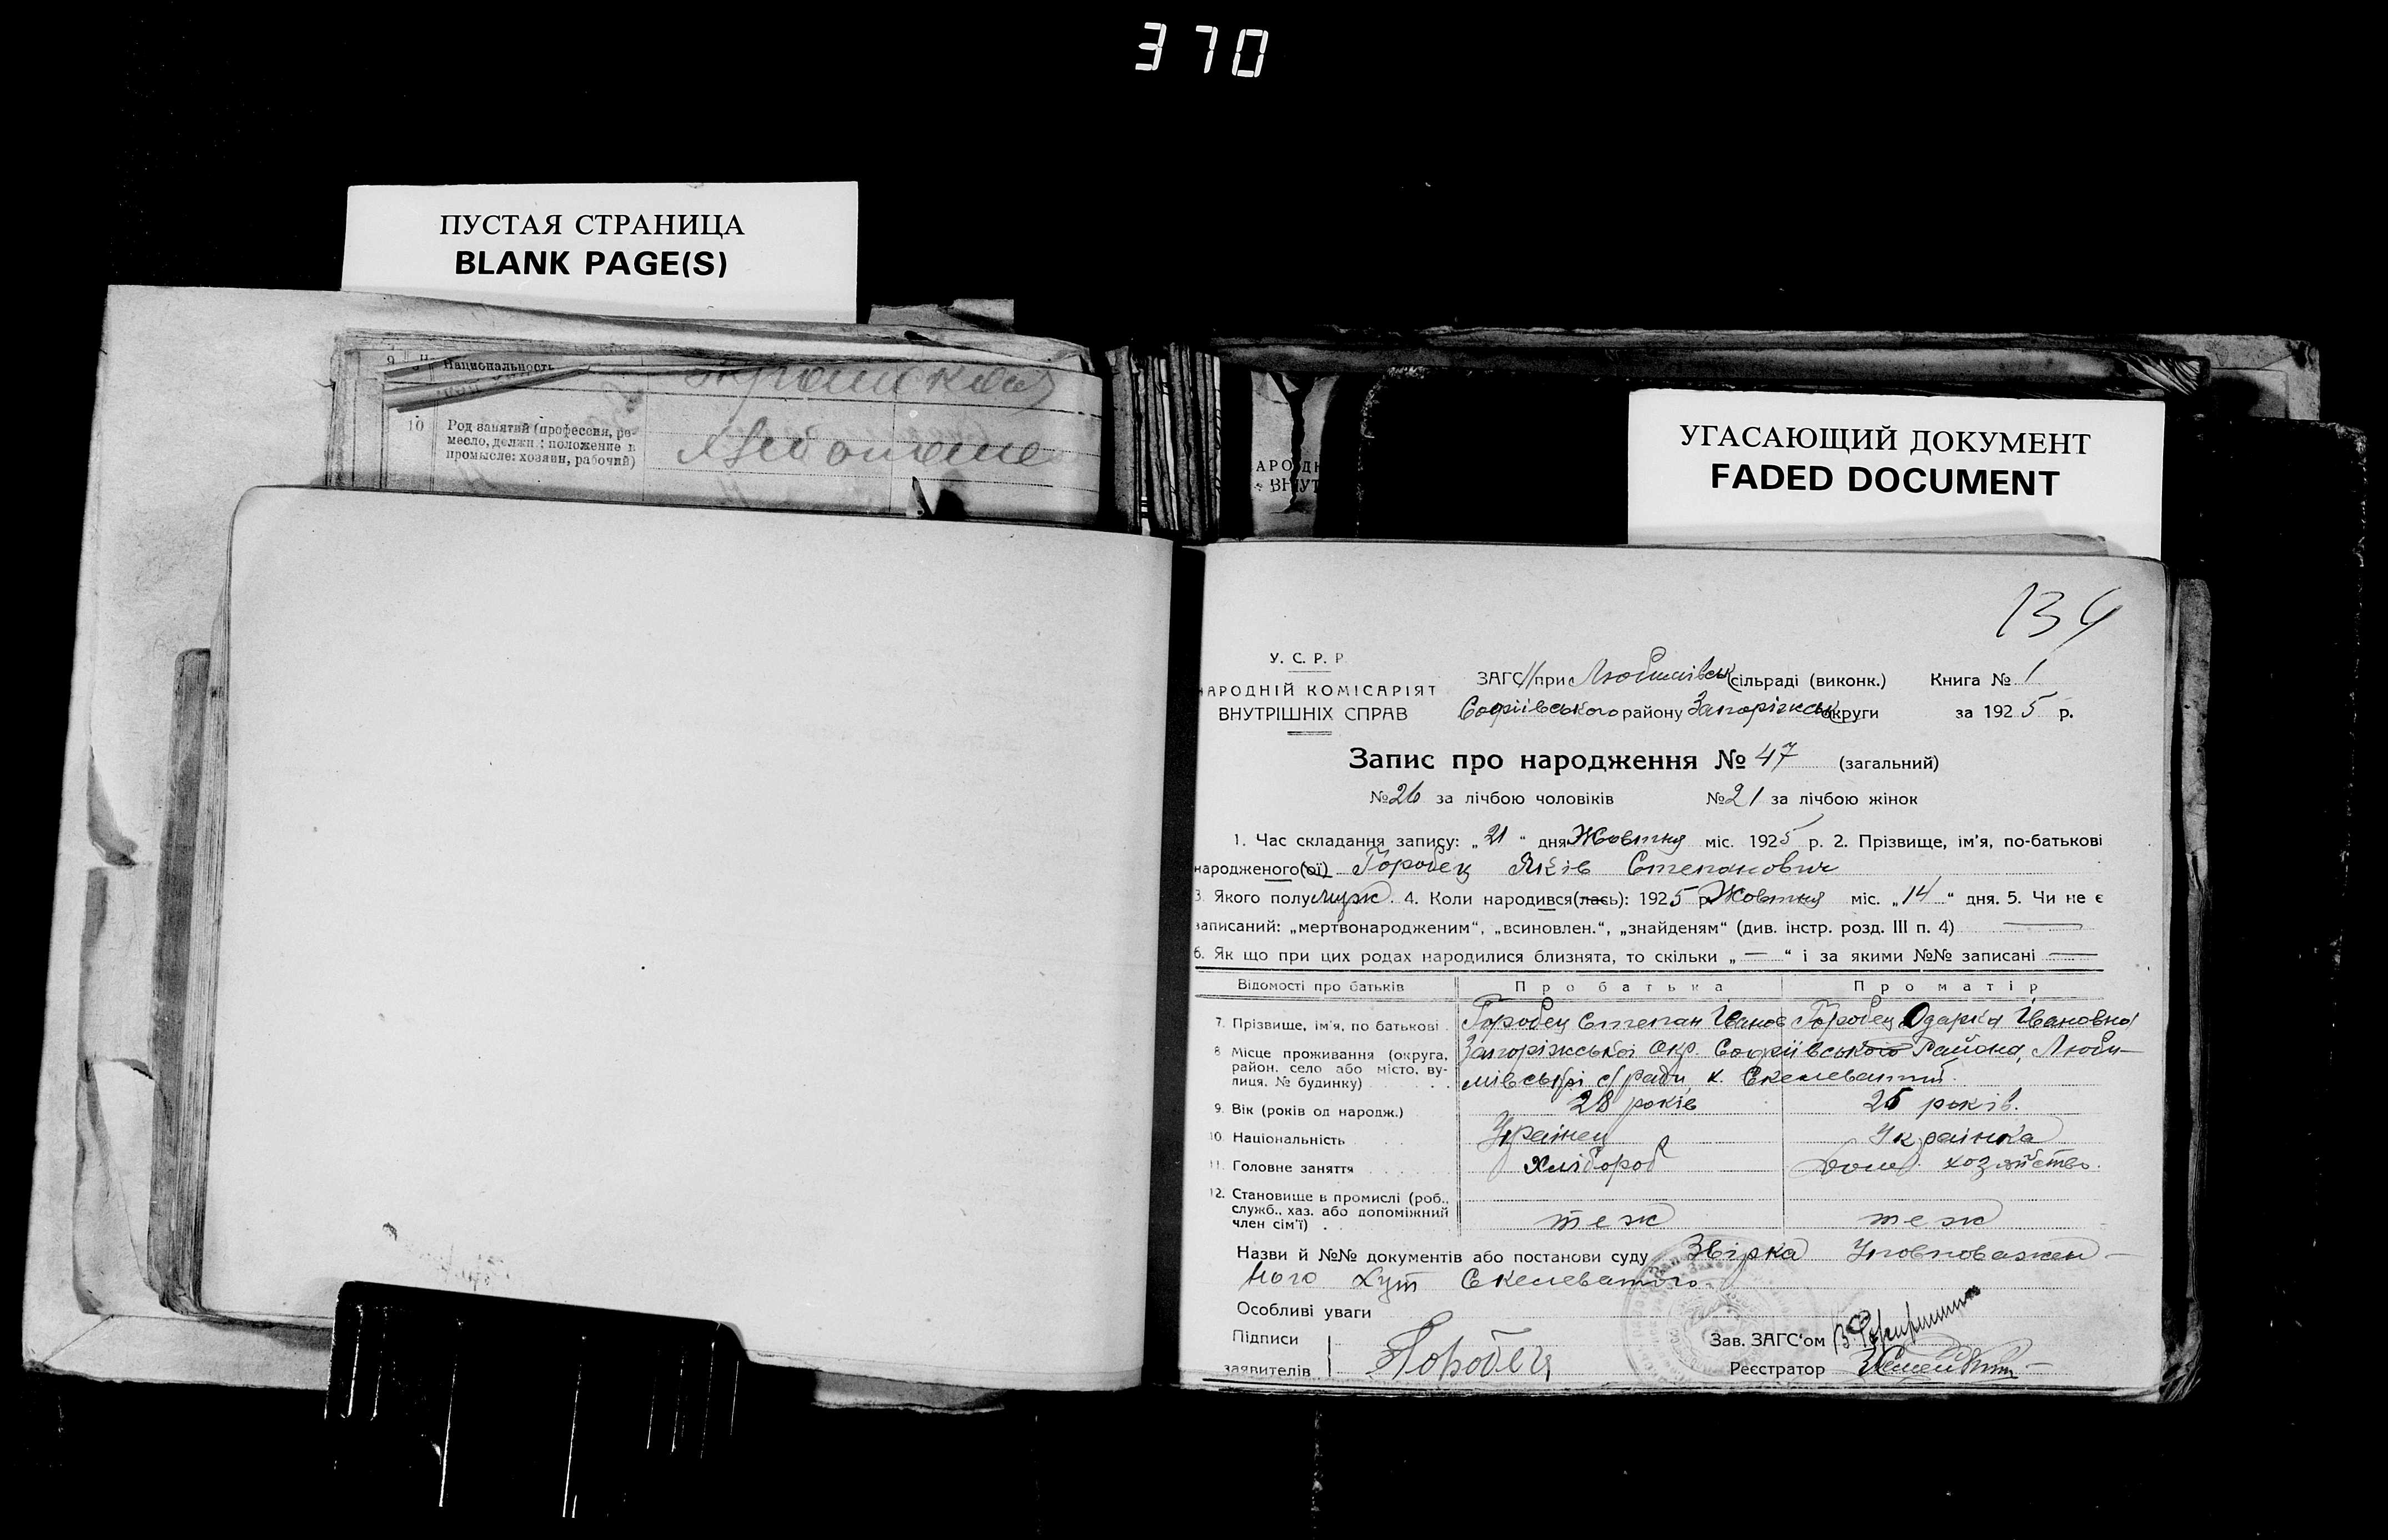 370
ПУСТАЯ СТРАНИЦА
BLANK PAGE(S)
9 Национальность
10 Род занятий (профессия, ре-
месло, должн.: положение в
промысле: хозяин, рабочий)
УГАСАЮЩИЙ ДОКУМЕНТ
FADED DOCUMENT
134
У. С. Р. Р.
НАРОДНІЙ КОМІСАРІЯТ
ВНУТРІШНІХ СПРАВ
ЗАГС при Любимівськ сільраді (виконк.) Книга № 1
Софіївського району Запоріжськ округи за 1925 р.
Запис про народження № 47 (загальний)
№ 26 за лічбою чоловіків № 21 за лічбою жінок
1. Час складання запису: „21“ дня Жовтня міс. 1925 р. 2. Прізвище, ім'я, по-батькові
народженого(ої) Горобец Яків Степанович
3. Якого полу муж. 4. Коли народився(лась): 1925 р. Жовтня міс. „14“ дня. 5. Чи не є
записаний: „мертвонародженим“, „всиновлен.“, „знайденям“ (див. інстр. розд. III п. 4) —
6. Як що при цих родах народилися близнята, то скільки „—“ і за якими №№ записані —
Відомості про батьків Про батька Про матір
7. Прізвище, ім'я, по батькові Горобец Степан Іванов Горобец Одарка Івановна
8 Місце проживання (округа, район, село або місто, ву-лиця, № будинку) Запоріжської Окр. Софіївського Района, Люби-
мівської с/ради х. Скелеватий.
9. Вік (років од народж.) 28 років 25 років.
10. Національність Украінец Украінка
11. Головне заняття Хлібороб Дом. хозяйство.
12. Становище в промислі (роб., служб., хаз. або допоміжний член сім'ї) теж теж
Назви й №№ документів або постанови суду Звірка Уповноважен-
ного Хут Скелеватого
Особливі уваги
Підписи
заявителів Горобец
Зав. ЗАГС'ом
Реєстратор